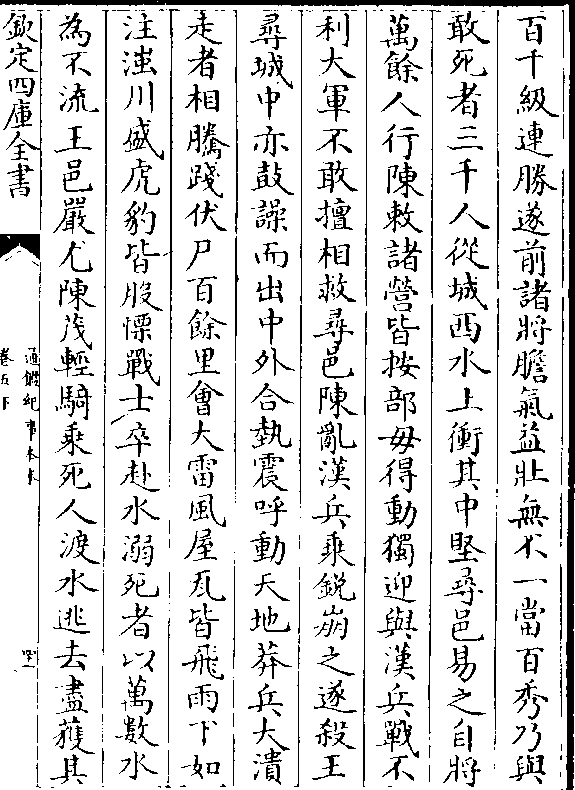 百千級連勝遂前諸將膽氣益壯無不一當百秀乃與
敢死者三千人從城西水上衝其中堅尋邑易之自將
萬餘人行陳敕諸營皆按部毋得動獨迎與漢兵戰不
利大軍不敢擅相救尋邑陳亂漢兵乘鋭崩之遂殺王
尋城中亦鼓譟而出中外合執震呼動天地莽兵大潰
走者相騰踐伏尸百餘里會大雷風屋瓦皆飛雨下如
注滍川盛虎豹皆股慄戰士卒赴水溺死者以萬數水
為不流王邑嚴尤陳茂輕騎乘死人渡水逃去盡獲其
欽定四庫全書
通鑑紀事本末
卷五下